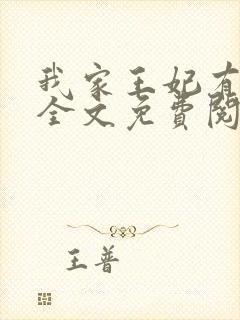 我家王妃有
全文免費閱
王普